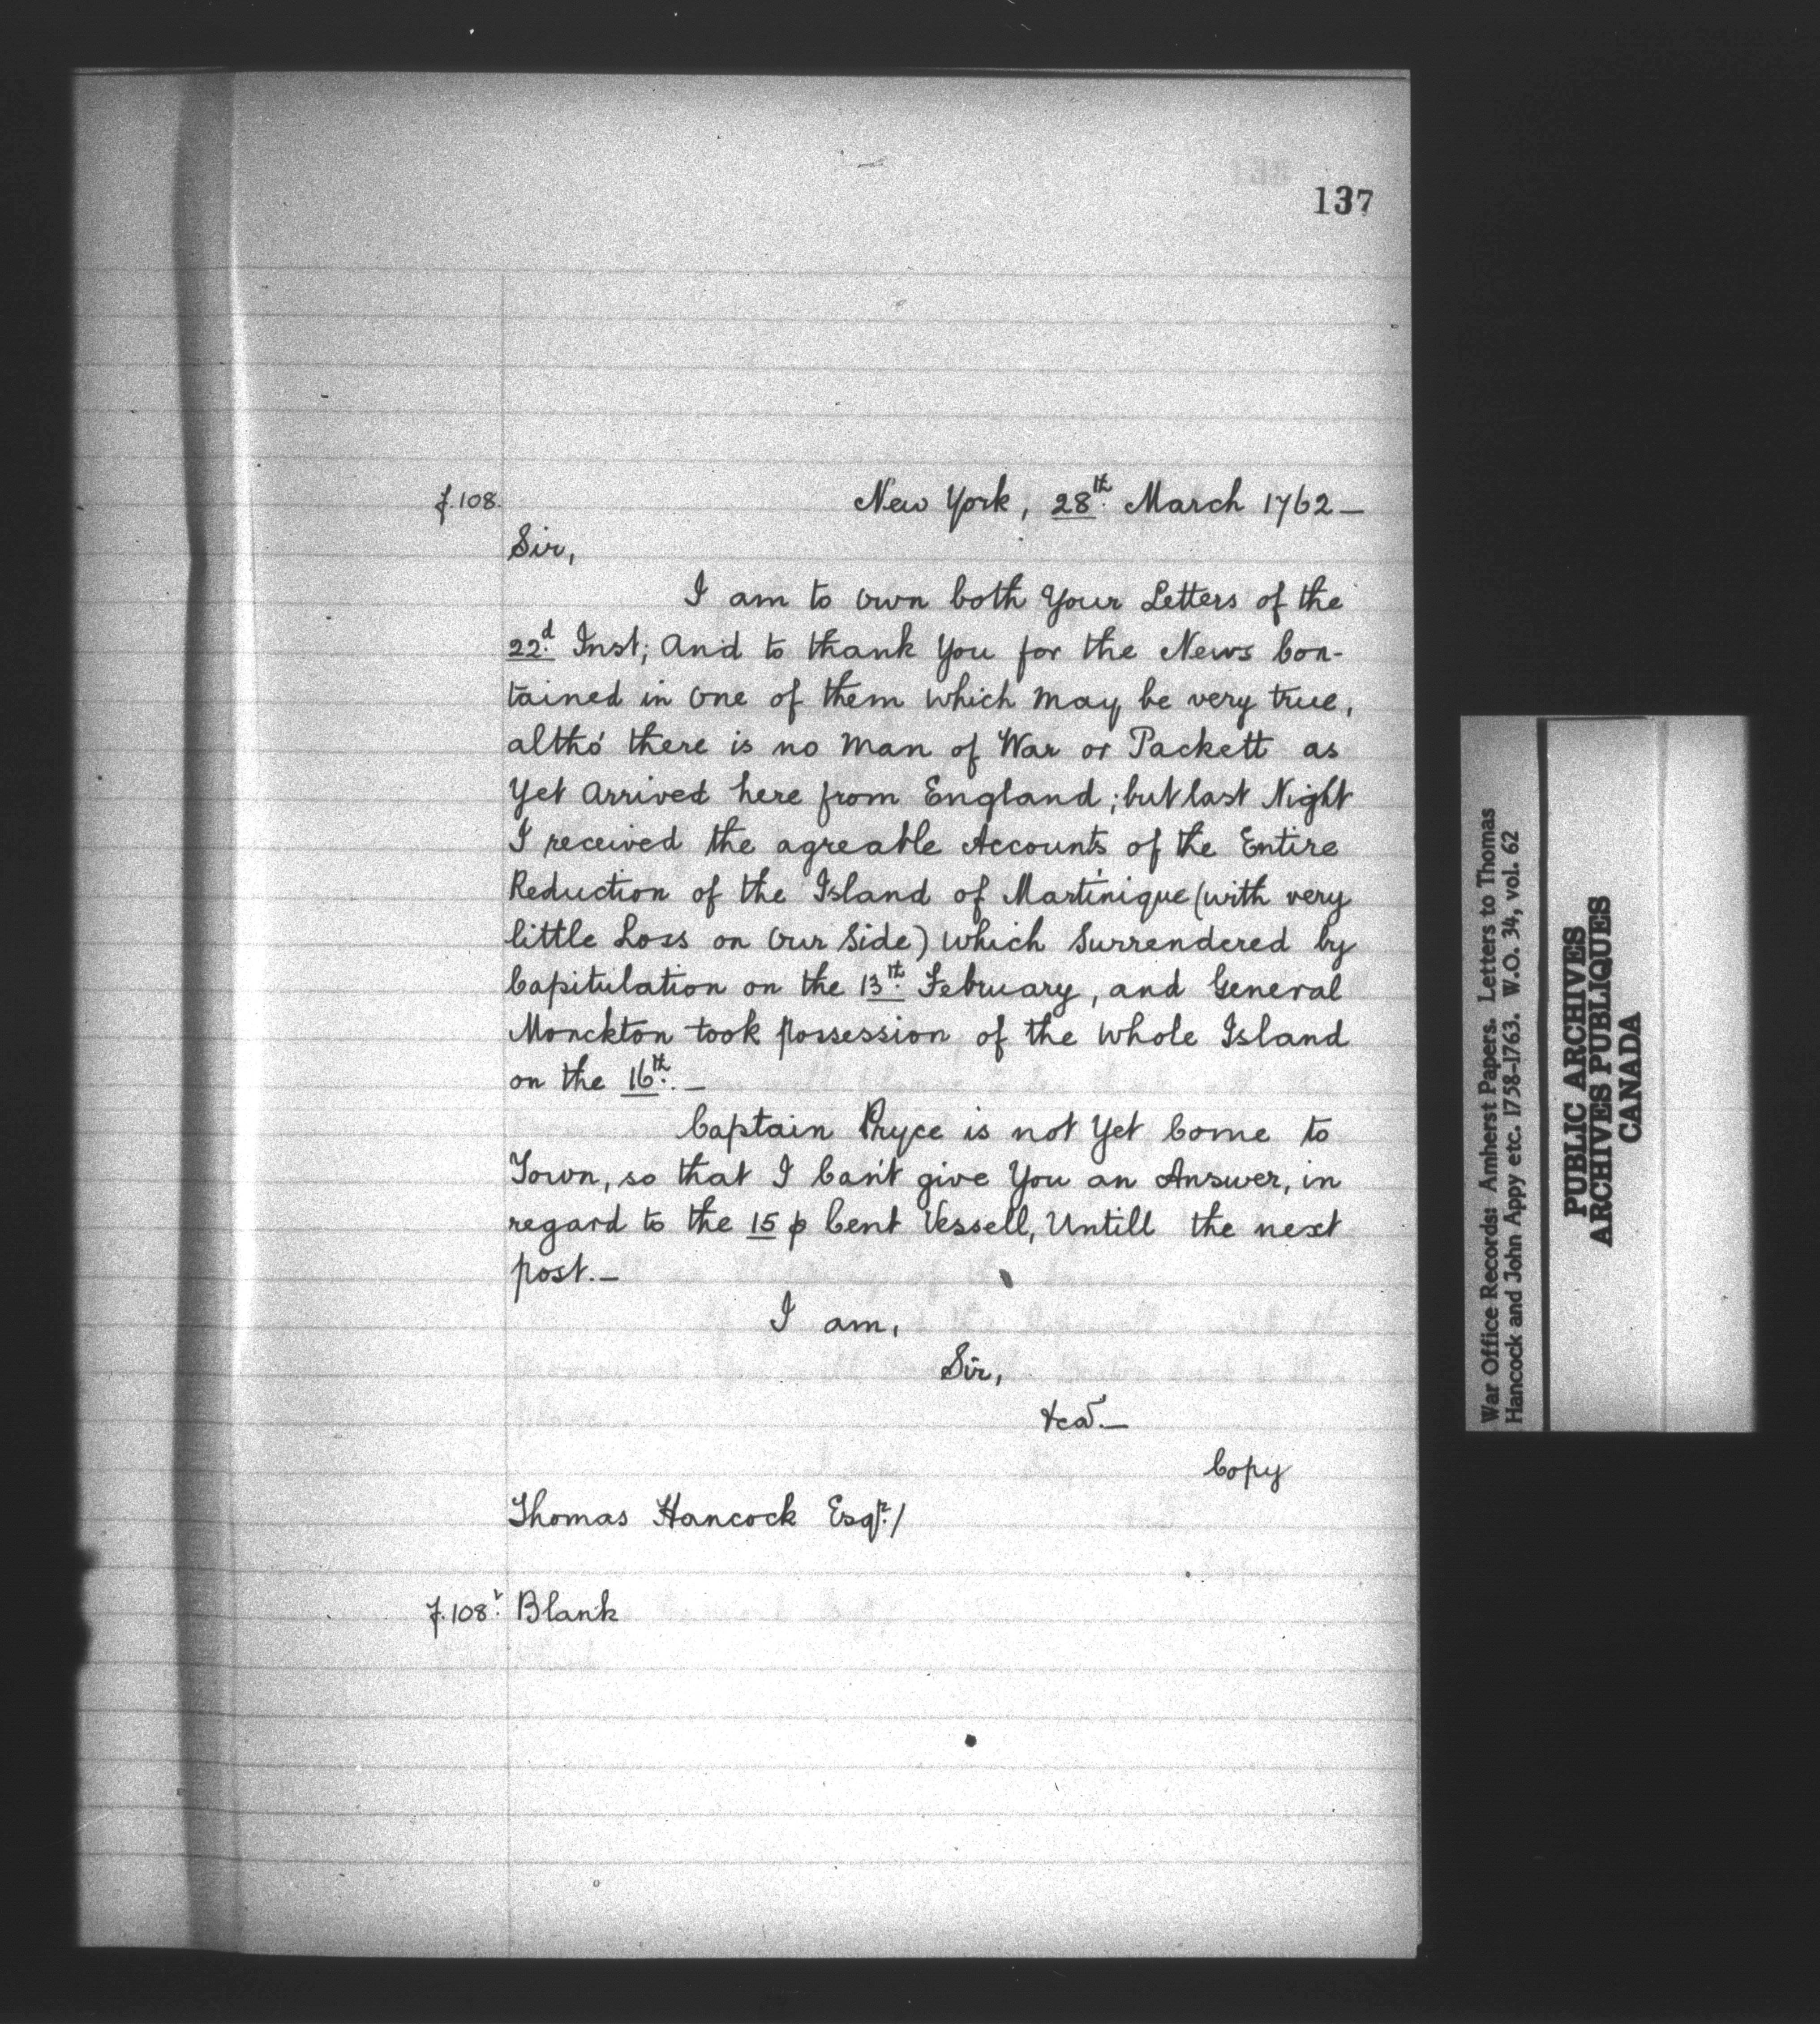 137
f.108. New York, 28th. March 1762_
Sir,
I am to Own both Your Letters of the
22d. Inst; And to thank You for the News Con-
tained in One of them which May be very true,
altho' there is no Man of War or Packett as
Yet Arrived here from England; but last Night
I received the agreable Accounts of the Entire
Reduction of the Island of Martinique (with very
little Loss on Our Side) which Surrendered by
Capitulation on the 13th. February, and General
Monckton took possession of the Whole Island
on the 16th._
Captain Pryce is not Yet Come to
Town, so that I Can't give You an Answer, in
regard to the 15 p Cent Vessell, Untill the next
post._
I am,
Sir,
&ca._
Copy
Thomas Hancock Esqr./
f.108v. Blank
War Office Records: Amherst Papers. Letters to Thomas
Hancock and John Appy etc. 1758-1763. W.O. 34, vol. 62
PUBLIC ARCHIVES
ARCHIVES PUBLIQUES
CANADA